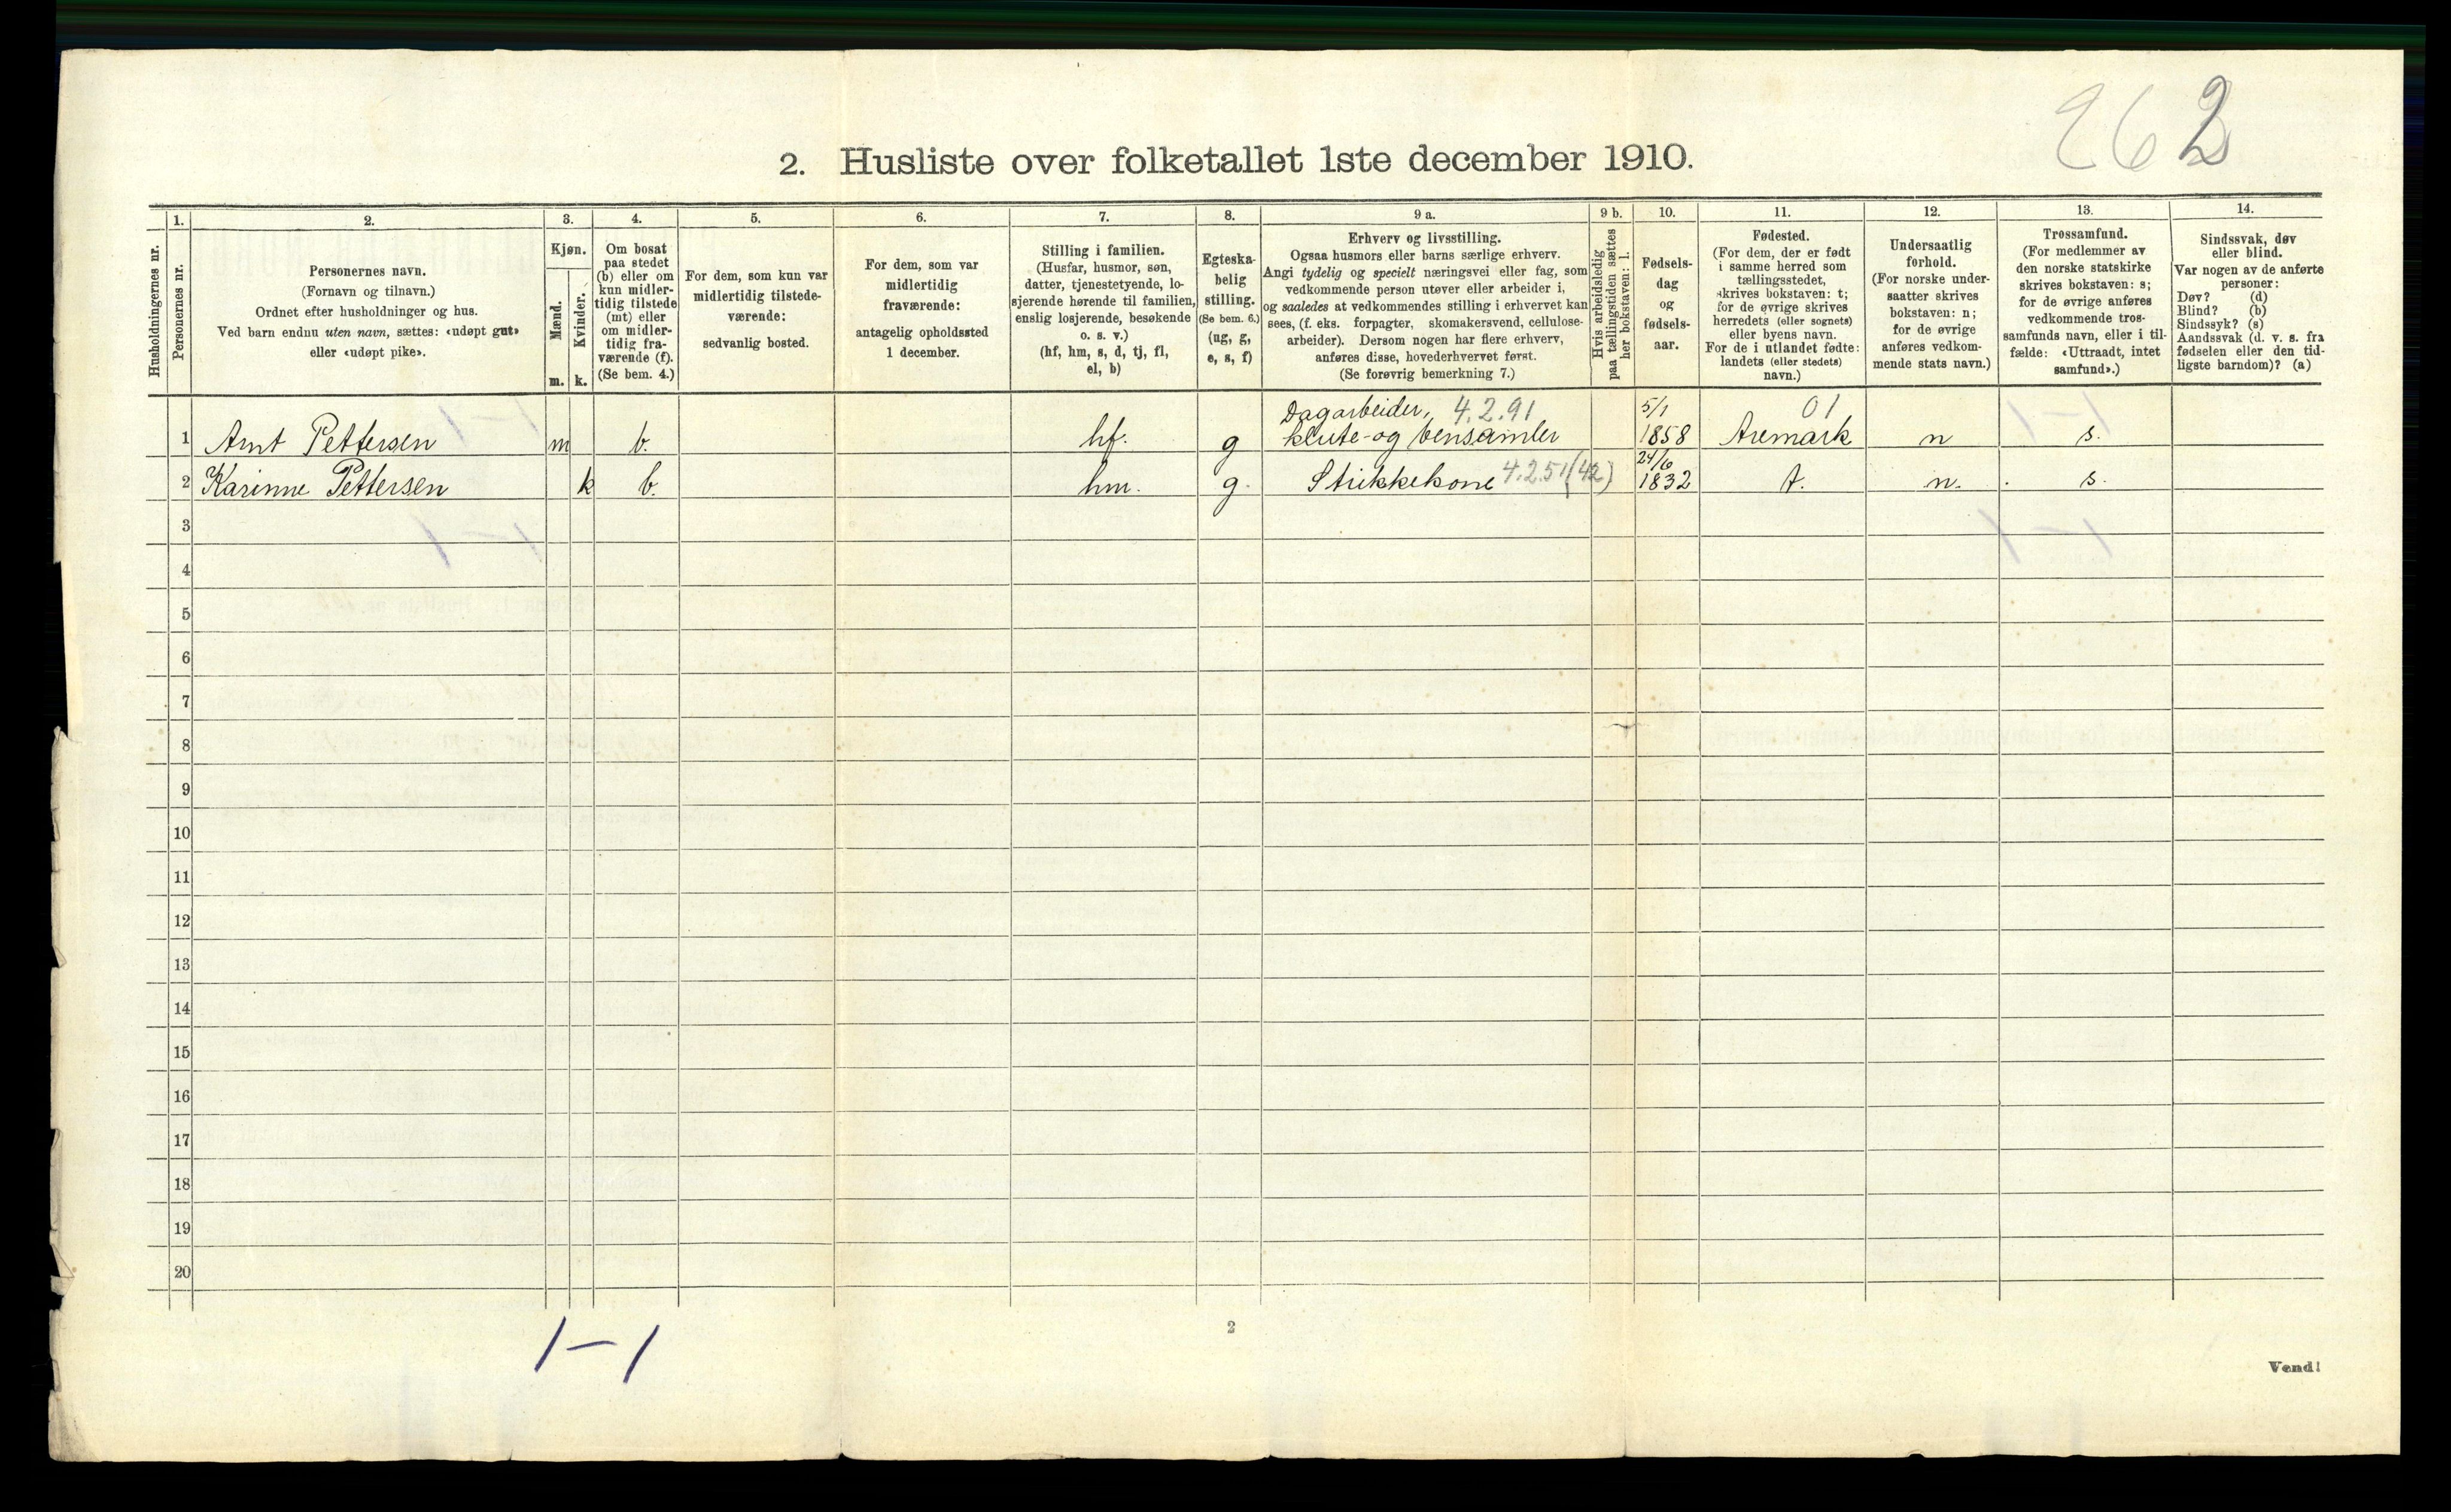 262
2. Husliste over folketallet 1ste december 1910.
Husholdningernes nr.
1.
Personernes nr.
2.
Personernes navn.
(Fornavn og tilnavn.)
Ordnet efter husholdninger og hus.
Ved barn endnu uten navn, sættes: «udøpt gut»
eller «udøpt pike».
3.
Kjøn.
Mænd.
m.
Kvinder.
k.
4.
Om bosat
paa stedet
(b) eller om
kun midler-
tidig tilstede
(mt) eller
om midler-
tidig fra-
værende (f).
(Se bem. 4.)
5.
For dem, som kun var
midlertidig tilstede-
værende:
sedvanlig bosted.
6.
For dem, som var
midlertidig
fraværende:
antagelig opholdssted
1 december.
7.
Stilling i familien.
(Husfar, husmor, søn,
datter, tjenestetyende, lo-
sjerende hørende til familien,
enslig losjerende, besøkende
o. s. v.)
(hf, hm, s, d, tj, fl,
el, b)
8.
Egteska-
belig
stilling.
(Se bem. 6.)
(ug, g,
e, s, f)
9 a.
Erhverv og livsstilling.
Ogsaa husmors eller barns særlige erhverv.
Angi tydelig og specielt næringsvei eller fag, som
vedkommende person utøver eller arbeider i,
og saaledes at vedkommendes stilling i erhvervet kan
sees, (f. eks. forpagter, skomakersvend, cellulose-
arbeider). Dersom nogen har flere erhverv,
anføres disse, hovederhvervet først.
(Se forøvrig bemerkning 7.)
9 b.
Hvis arbeidsledig
paa tællingstiden sættes
her bokstaven: l.
10.
Fødsels-
dag
og
fødsels-
aar.
11.
Fødested.
(For dem, der er født
i samme herred som
tællingsstedet,
skrives bokstaven: t;
for de øvrige skrives
herredets (eller sognets)
eller byens navn.
For de i utlandet fødte:
landets (eller stedets)
navn.)
12.
Undersaatlig
forhold.
(For norske under-
saatter skrives
bokstaven: n;
for de øvrige
anføres vedkom-
mende stats navn.)
13.
Trossamfund.
(For medlemmer av
den norske statskirke
skrives bokstaven: s;
for de øvrige anføres
vedkommende tros-
samfunds navn, eller i til-
fælde: «Uttraadt, intet
samfund».)
14.
Sindssvak, døv
eller blind.
Var nogen av de anførte
personer:
Døv? (d)
Blind? (b)
Sindssyk? (s)
Aandssvak (d. v. s. fra
fødselen eller den tid-
ligste barndom)? (a)
Dagarbeider, 4.2.91 5/1 01
1 Arnt Pettersen m b. hf. g klute-og bensamler 1858 Aremark n s.
24/6
2 Karinne Pettersen k b. hm. g. Strikkekone 4.2.51(42) 1832 t. n. s.
3
4
5
6
7
8
9
10
11
12
13
14
15
16
17
18
19
20
1-1
2
Vend!